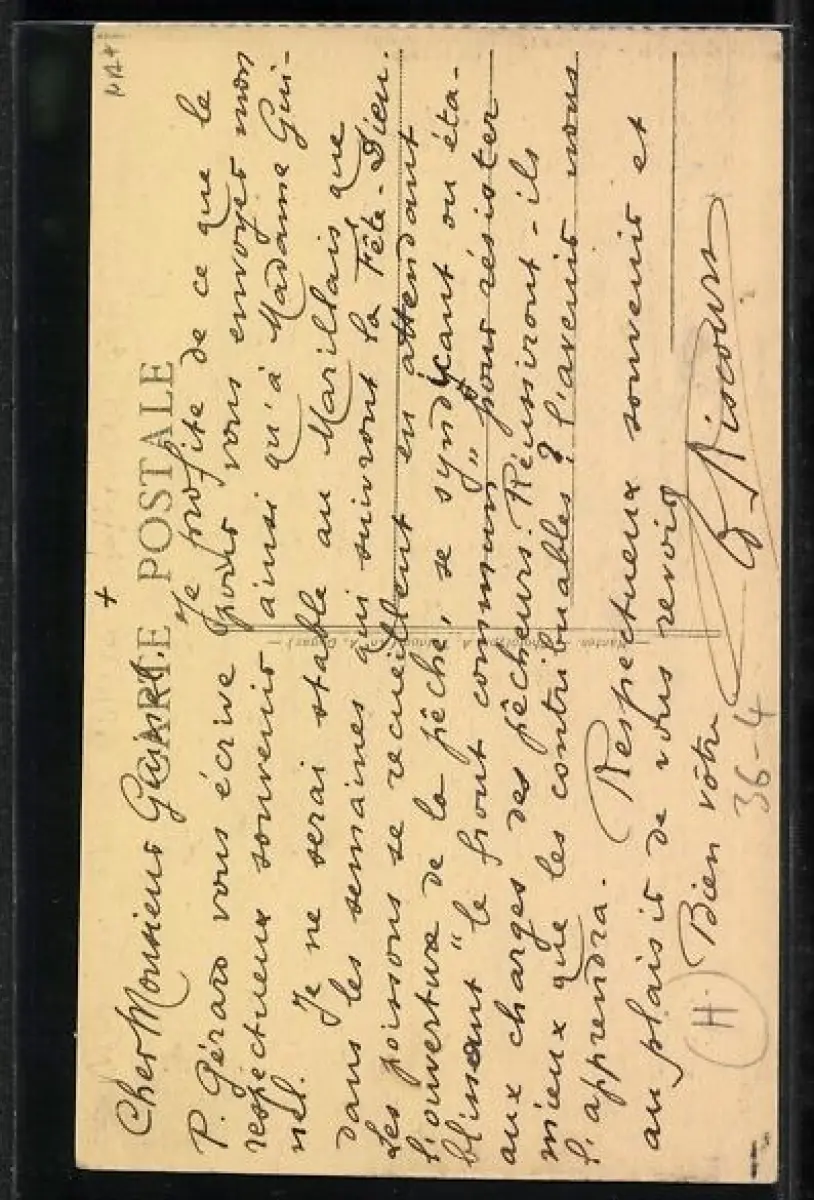 +
CARTE POSTALE
Cher Monsieur Guinel. Je profite de ce que le
P. Gérard vous écrive pour vous envoyer mon
respectueux souvenir ainsi qu'à Madame Gui-
nel.
Je ne serai stable au Marillais que
dans les semaines qui suivront la Fête-Dieu.
Les poissons se recueillent en attendant
l'ouverture de la pêche, se syndicant ou éta-
blissant "le front commun" pour résister
aux charges des pêcheurs. Réussiront-ils
mieux que les contribuables? l'avenir nous
l'apprendra. Respectueux souvenir et
au plaisir de vous revoir
Bien vôtre
36-4
H.